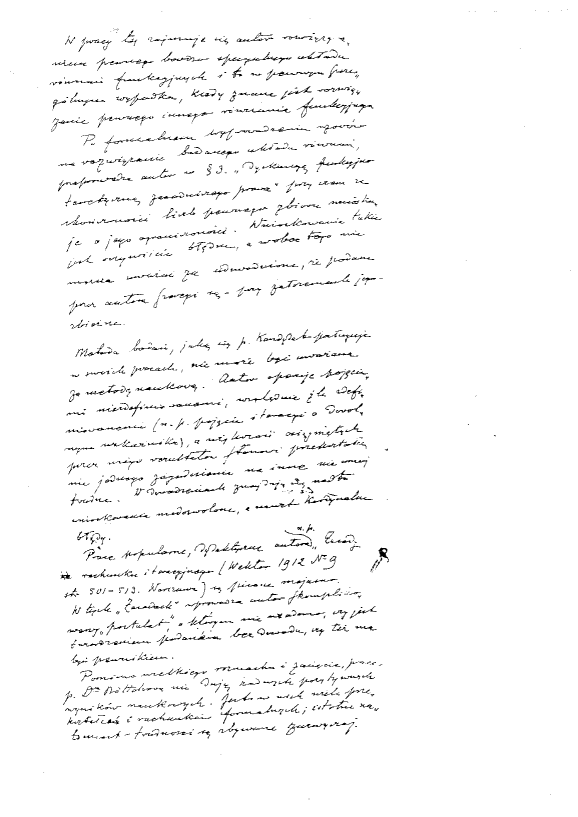 W pracy tej zajmuje się autor rozwiąza-
niem pewnego bardzo specyalnego układu
równań funkcyjnych i to w pewnym szcze-
gólnym wypadku, kiedy znane jest rozwią-
zanie pewnego innego równania funkcyjnego
Po formalnem wyprowadzeniu wzorów
na rozwiązanie badanego układu równań,
przeprowadza autor w § 3. „Dyskusyę funkcyjno
teoretyczną zasadniczego prawa" przy czem ze
skończoności liczb pewnego zbioru wnioskuje
je o jego ograniczoności. Wnioskowanie takie
jest oczywiście błędne, a wobec tego nie
można uważać za udowodnione, że podane
przez autora szeregi są – przy założeniach jego –
zbieżne.
Metoda badań, jaką się p. posługuje
w swoich pracach, nie może być uważana
za metodę naukową. Autor operuje pojęcia-
mi niezdefiniowanemi, względnie źle defi-
niowanemi (n. p. pojęcie iteracyi o dowol-
nym wskaźniku), a większość osiągniętych
przez niego rezultatów stanowi przekształce-
nie jednego zagadnienia na inne nie mniej
trudne. W dowodzeniach znajdują się nadto
wnioskowania niedozwolone, a nawet kardynalne
błędy.
n. p.
Prace popularne, dydaktyczne autora „Zasady
rachunku iteracyjnego (Wektor 1912 Nº 9
str. 501–513. Warszawa) są pisane
W tych „Zasadach" wprowadza autor
wany „postulat" o którym nie wiadomo, czy jest
twierdzeniem podanem bez dowodu, czy też ma
być pewnikiem.
Pomimo wielkiego rozmachu i zacięcia, prace
p. Dra Böttchera nie dają żadnych pozytywnych
wyników naukowych. Jest w nich wiele prze-
kształceń i rachunków formalnych; istotne na-
tomiast trudności są zbywane zazwyczaj.